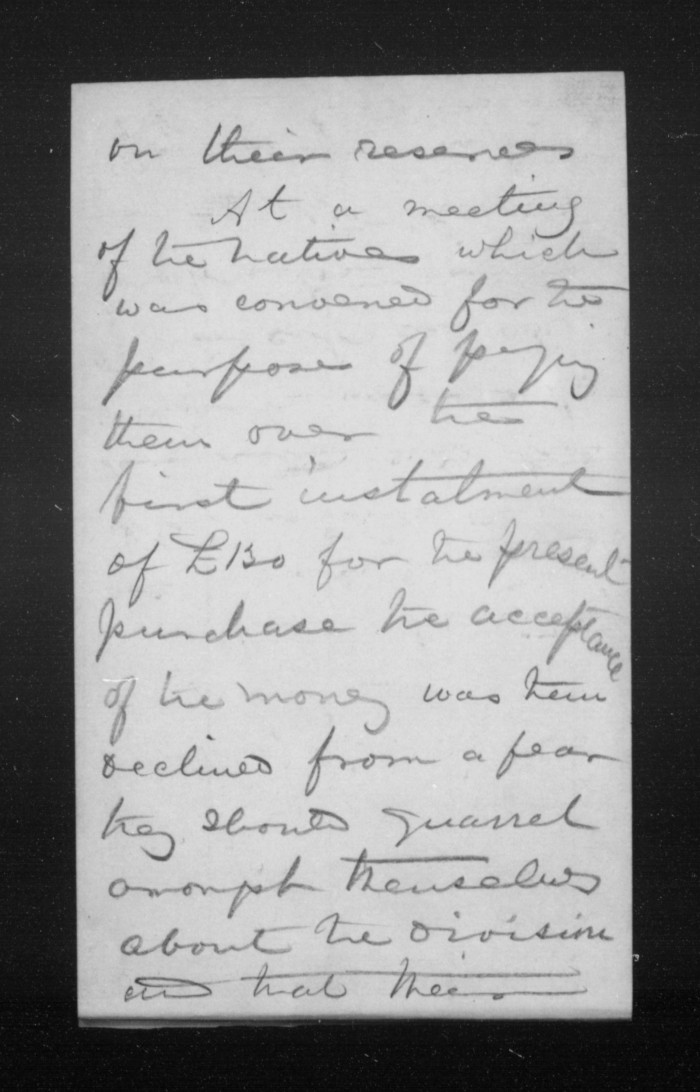 on their reserves
At a meeting
of the natives which
was convened for the
purpose of paying
them over the
first instalment
of £130 for the present
purchase the acceptance
of the money was then
declined from a fear
they should quarrel
amongst themselves
about the division
and that their